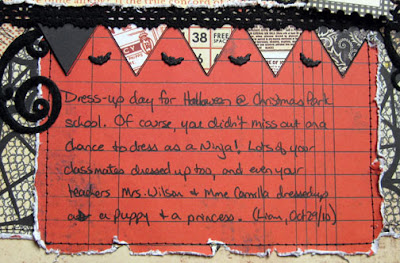 38 FREE SPACE
Dress-up day for Halloween @ Christmas Park
school. Of course, you didn't miss out on a
chance to dress as a Ninja! Lots of your
classmates dressed up too, and even your
teachers Mrs. Wilson & Mme Camilla dressed up
as a puppy & a princess. (Liam, Oct 29/10)